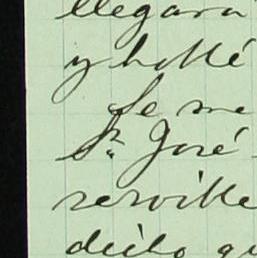 llegara
y hallé
Se me
Sr. José
serville
dicho qu